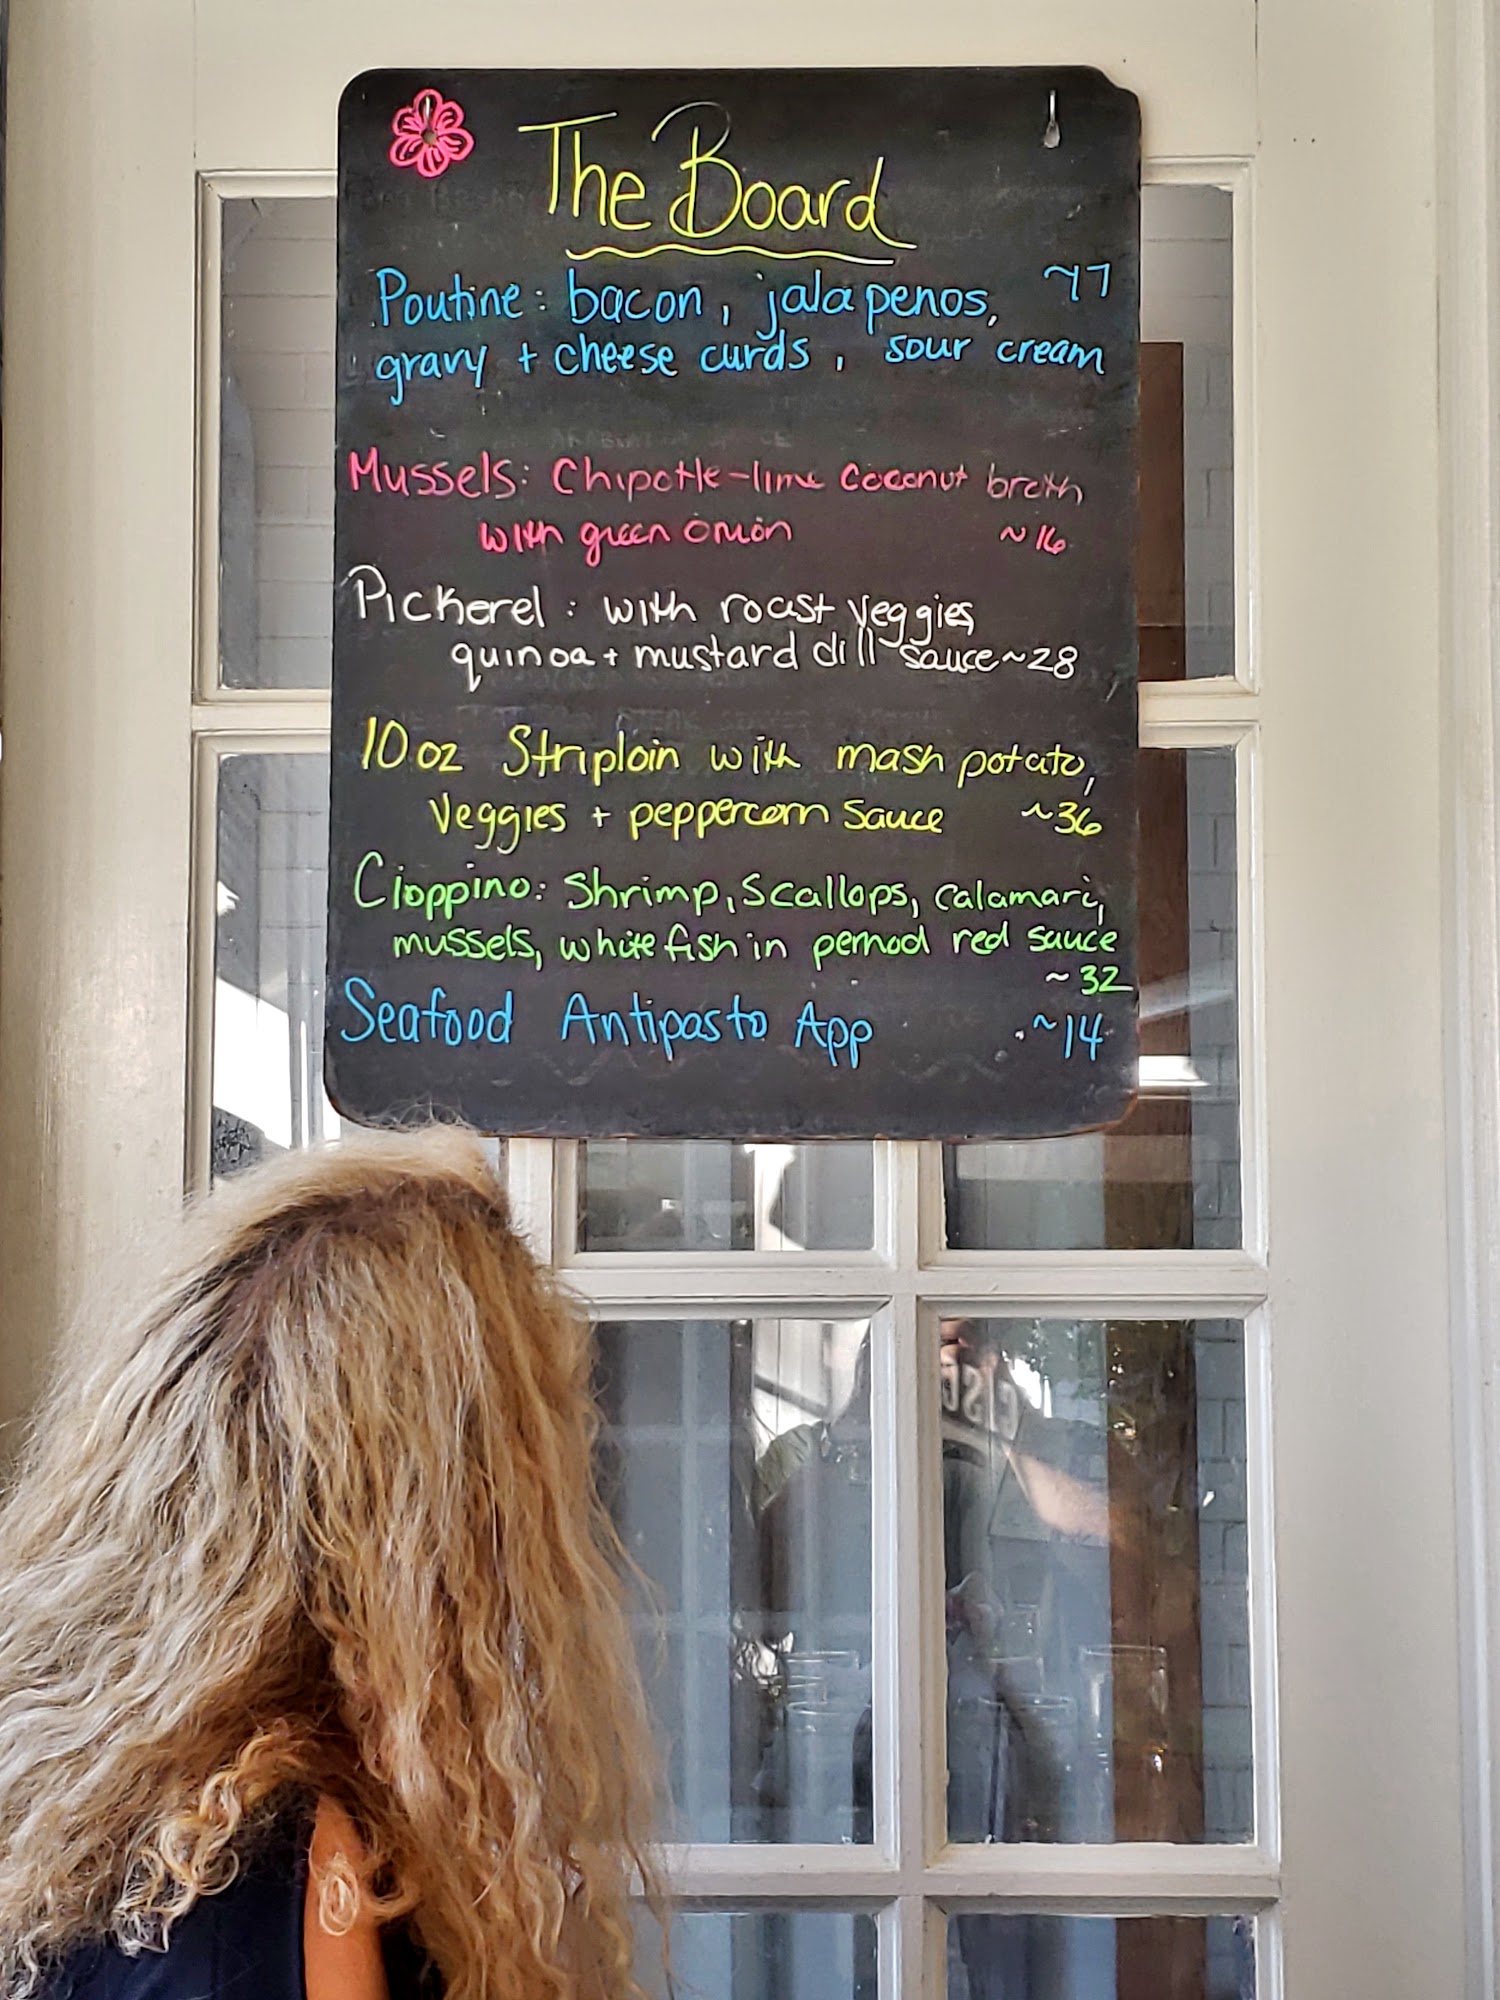 The Board
Poutine: bacon, jalapenos, ~17
gravy + cheese curds, sour cream
Mussels: Chipotle-lime coconut broth
with green onion ~16
Pickerel: with roast veggies
quinoa + mustard dill sauce ~28
10 oz Striploin with mash potato,
Veggies + peppercorn sauce ~36
Cioppino: Shrimp, Scallops, calamari,
mussels, white fish in pernod red sauce
~32
Seafood Antipasto App ~14